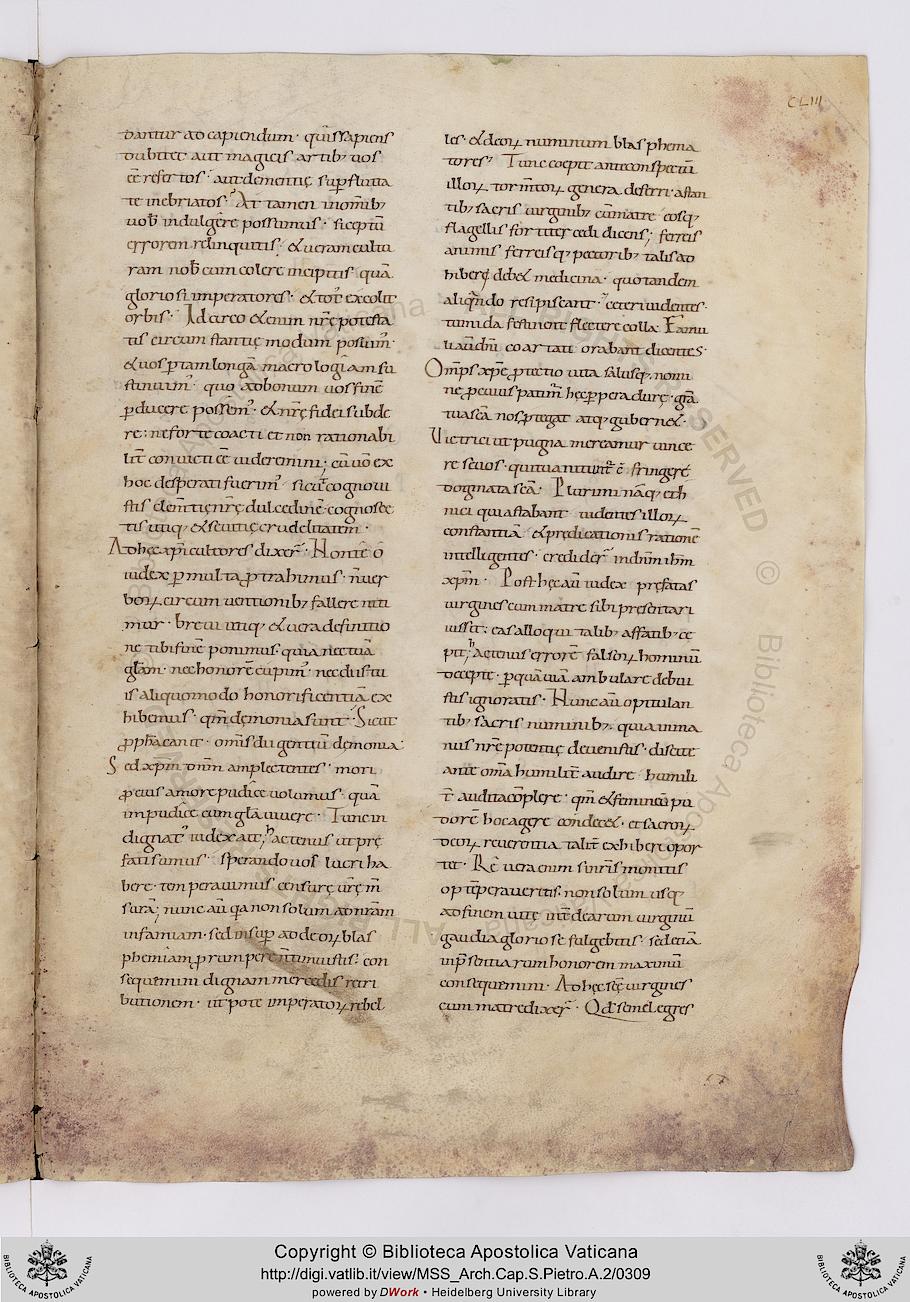 CLIII
dantur ad capiendum · quis sapiens
dubitet aut magicis artib; uos
ēē refertos · aut dementię supfluita
te inebriatos? At tamen in omib;
uob indulgere possumus · si ceptū
errorem relinquitis · & ueram cultu
ram nob cum colere incipitis quā
gloriosi imperatores · & tot' excolit
orbis · Id circo & enim nrę potesta
tis circum stantię modum posuim' ·
& uos ptam longā macrologiam su
stinuim' · quo ad bonum uos finē
pducere possem' · & nrę fidei subde
re : ne forte coacti et non rationabi
lit conuicti ēē uideremini ; cū uō ex
hoc desperati fuerim' · sicut cognoui
stis clemtię nrę dulcedinē cognosce
tis utiq; & seuitię crudelitatem ·
Ad hęc xpi cultores dixer · Non te o
iudex p multa protrahimus · n uer
borz circum uentionib; fallere niti
mur · breui utiq; & uera definitio
ne tibi finē ponimus : quia nec tuā
glam · nec honorē cupim' · nec diis tu
is aliquomodo honorificentiā ex
hibemus · qm demonia sunt · Sicut
propha canit · omis dii gentiū demonia ·
Sed xpm dnm amplectentes · mori
pro eius amore pudice uolumus · quā
impudice cum gla uiuere · Tunc in
dignat' iudex ait ; Hactenus ut prę
fati sumus · sperando uos lucri ha
bere · temperauimus censurę urę m
suram ; nunc aū qa non solum ad nram
infamiam · sed insup ad deorz blas
phemiam prorumpere n timuistis : con
sequemini dignam mercedis retri
butionem · ut pote imperatorz rebel
les · & deorz numinum blasphema
tores ; Tunc coepit ante conspectū
illorz tormtorz genera deferri · astan
tib; sacris uirginib; cū matre · eosq;
flagellis fortiter cedi dicens ; ferreis
animis ferreisq; pectorib; talis ad
hiberę deb& medicina · quo tandem
aliqndo resipiscant · & ceteri uidentes ·
tumida festinent flectere colla · Famu
li aū dni coartati orabant dicentes ·
Omps xpe protectio uita salusq; nomi
ne pro cuius patim hęc pperadurę · gra
tua scā nos ptegat atq; gubern& ·
Victrici ut pugna mereamur uince
re seuos · qui tua nitunt ē fringere
dogmata scā · Plurimi nāq; eth
nici qui astabant uidentes illorz
constantiā & predicationis rationē
intellegentes · credider in dnm ihm
xpm · Post hęc aū iudex prefatas
uirgines cum matre sibi presentari
iussit : eas alloqui talib; affatib; ce
pit ; Hactenus errorē falsorz hominū
decepte · p quā uiā ambulare debui
stis ignoratis · Nunc aū opitulan
tib; sacris numinib; quia in ma
nus nrę potentię deuenistis · discite
ante oma humilit audire · humili
t audita cōplere · qm & femineū pu
dorē hoc agere condec& · et sacrorz
deorz reuerentia talit exhiberi opor
tet · Re uera enim si nris monitis
optēperaueritis · non solum usq;
ad finem uitę int dearum uirginū
gaudia gloriose fulgebitis · sed etiā
in psentiarum honorem maximū
consequemini · Ad hęc scę uirgines
cum matre dixer · Qd semel egres
Copyright © Biblioteca Apostolica Vaticana
http://digi.vatlib.it/view/MSS_Arch.Cap.S.Pietro.A.2/0309
powered by DWork • Heidelberg University Library